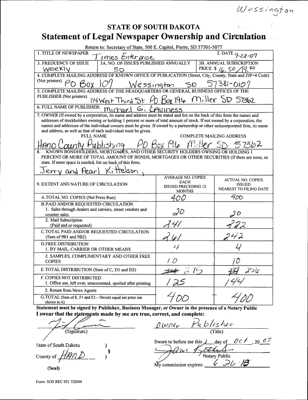 Wessington
STATE OF SOUTH DAKOTA
Statement of Legal Newspaper Ownership and Circulation
Return to: Secretary of State, 500 E. Capitol, Pierre, SD 57501-5077
1. TITLE OF NEWSPAPER Times Enterprise 2. DATE 9-28-07
3. FREQUENCY OF ISSUE weekly 3A. NO. OF ISSUES PUBLISHED ANNUALLY 50 3B. ANNUAL SUBSCRIPTION PRICE $
4. COMPLETE MAILING ADDRESS OF KNOWN OFFICE OF PUBLICATION (Street, City, County, State and ZIP+4 Code)
(Not printers) PO Box 107 Wessington SD 57381-0107
5. COMPLETE MAILING ADDRESS OF THE HEADQUARTERS OF GENERAL BUSINESS OFFICES OF THE
PUBLISHER (Not printers) 114 West Third St PO Box 196 Miller SD 57362
6. FULL NAME OF PUBLISHER: Michael G.
7. OWNER (If owned by a corporation, its name and address must be stated and on the back of this form the names and
addresses of stockholders owning or holding 1 percent or more of total amount of stock. If not owned by a corporation, the
names and addresses of the individual owners must be given. If owned by a partnership or other unincorporated firm, its name
and address, as well as that of each individual must be given.
FULL NAME COMPLETE MAILING ADDRESS
Hand County Publishing PO Box 196 Miller SD 57362
8. KNOWN BONDHOLDERS, MORTGAGES, AND OTHER SECURITY HOLDERS OWNING OR HOLDING 1
PERCENT OR MORE OF TOTAL AMOUNT OF BONDS, MORTGAGES OR OTHER SECURITIES (If there are none, so
state. If more space is needed, list on back of this form.
Jerry and Pearl Kittelson
9. EXTENT AND NATURE OF CIRCULATION
AVERAGE NO. COPIES EACH ISSUED PRECEDING 12 MONTHS
ACTUAL NO. COPIES ISSUED NEAREST TO FILING DATE
A. TOTAL NO. COPIES (Net Press Run) 400 400
B. PAID AND/OR REQUESTED CIRCULATION
1. Sales through dealers and carriers, street vendors and
counter sales. 20 20
2. Mail Subscription
(Paid and or requested) 241 222
C. TOTAL PAID AND/OR REQUESTED CIRCULATION
(Sum of 9B1 and 9B2) 261 242
D. FREE DISTRIBUTION
1. BY MAIL, CARRIER OR OTHER MEANS 4 4
2. SAMPLES, COMPLIMENTARY AND OTHER FREE
COPIES 10 10
E. TOTAL DISTRIBUTION (Sum of C, D1 and D2)
F. COPIES NOT DISTRIBUTED
1. Office use, left over, unaccounted, spoiled after printing 125 144
2. Return from News Agents
G. TOTAL (Sum of E, F1 and F2 – Should equal net press run
shown in A) 400 400
Statement must be signed by Publisher, Business Manager, or Owner in the presence of a Notary Public
I swear that the statements made by me are true, correct, and complete:
Owner Publisher
(Signature) (Title)
State of South Dakota )
County of HAND ) §
Sworn to before me this 1 day of Oct, 20 07
Notary Public
(Seal)
My commission expires:
Form: SOS REC 051 7/2004